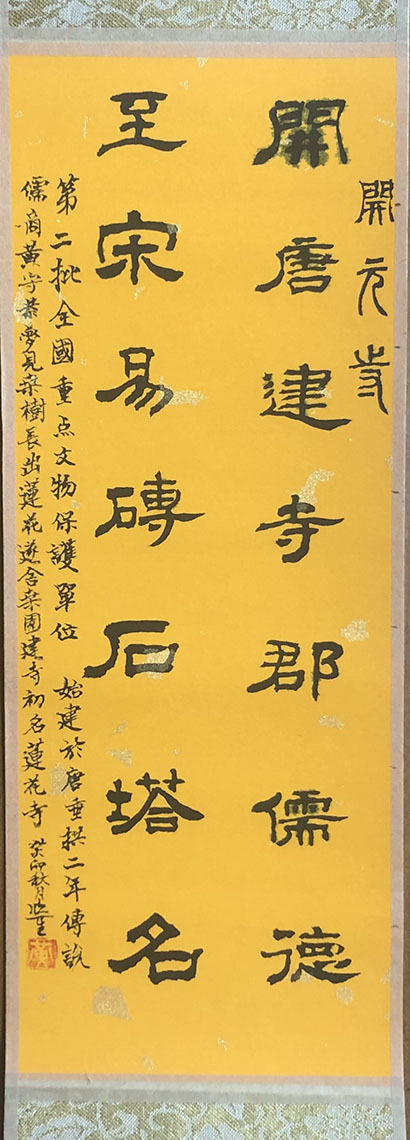 開元寺
開唐建寺郡儒德
至宋易磚石塔名
第二批全國重点文物保護單位 始建於唐垂拱二年傳說
儒商黃守恭夢見桑樹長出蓮花遂舍桑園建寺初名蓮花寺 癸卯秋月